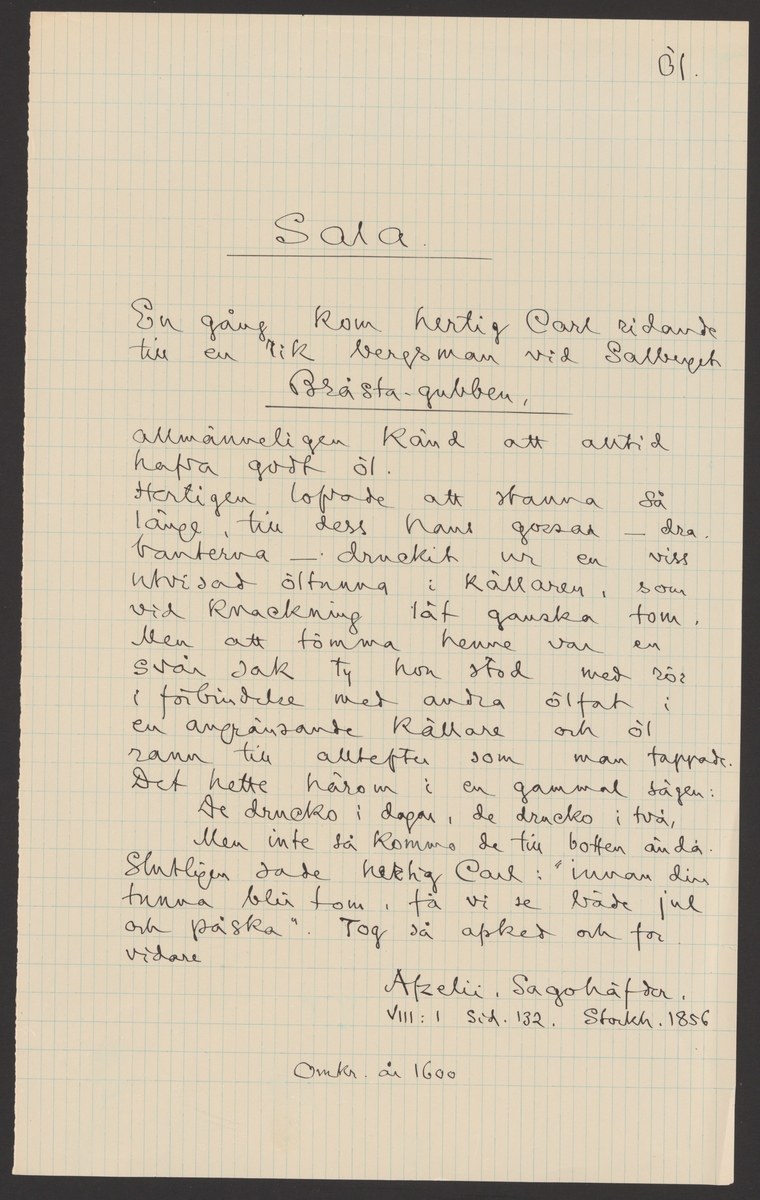 Öl.
Sala.
En gång kom hertig Carl ridande
till en rik bergsman vid Salberget
Bråsta-gubben,
allmänneligen känd att alltid
hafva godt öl.
Hertigen lofvade att stanna så
länge, till dess hans gossar — dra-
banterna — druckit ur en viss
utvisad öltunna i källaren, som
vid knackning lät ganska tom.
Men att tömma henne var en
svår sak ty hon stod med rör
i förbindelse med andra ölfat i
en angränsande källare och öl
rann till allteftersom man tappade.
Det hette härom i en gammal sägen:
De drucko i dagar, de drucko i två,
Men inte så kommo de till botten ändå.
Slutligen sade hertig Carl: "innan din
tunna blir tom, få vi se både jul
och påska". Tog så afsked och for
vidare
Afzelii, Sagohäfder.
VIII: 1 Sid. 132. Stockh. 1856
Omkr. år 1600